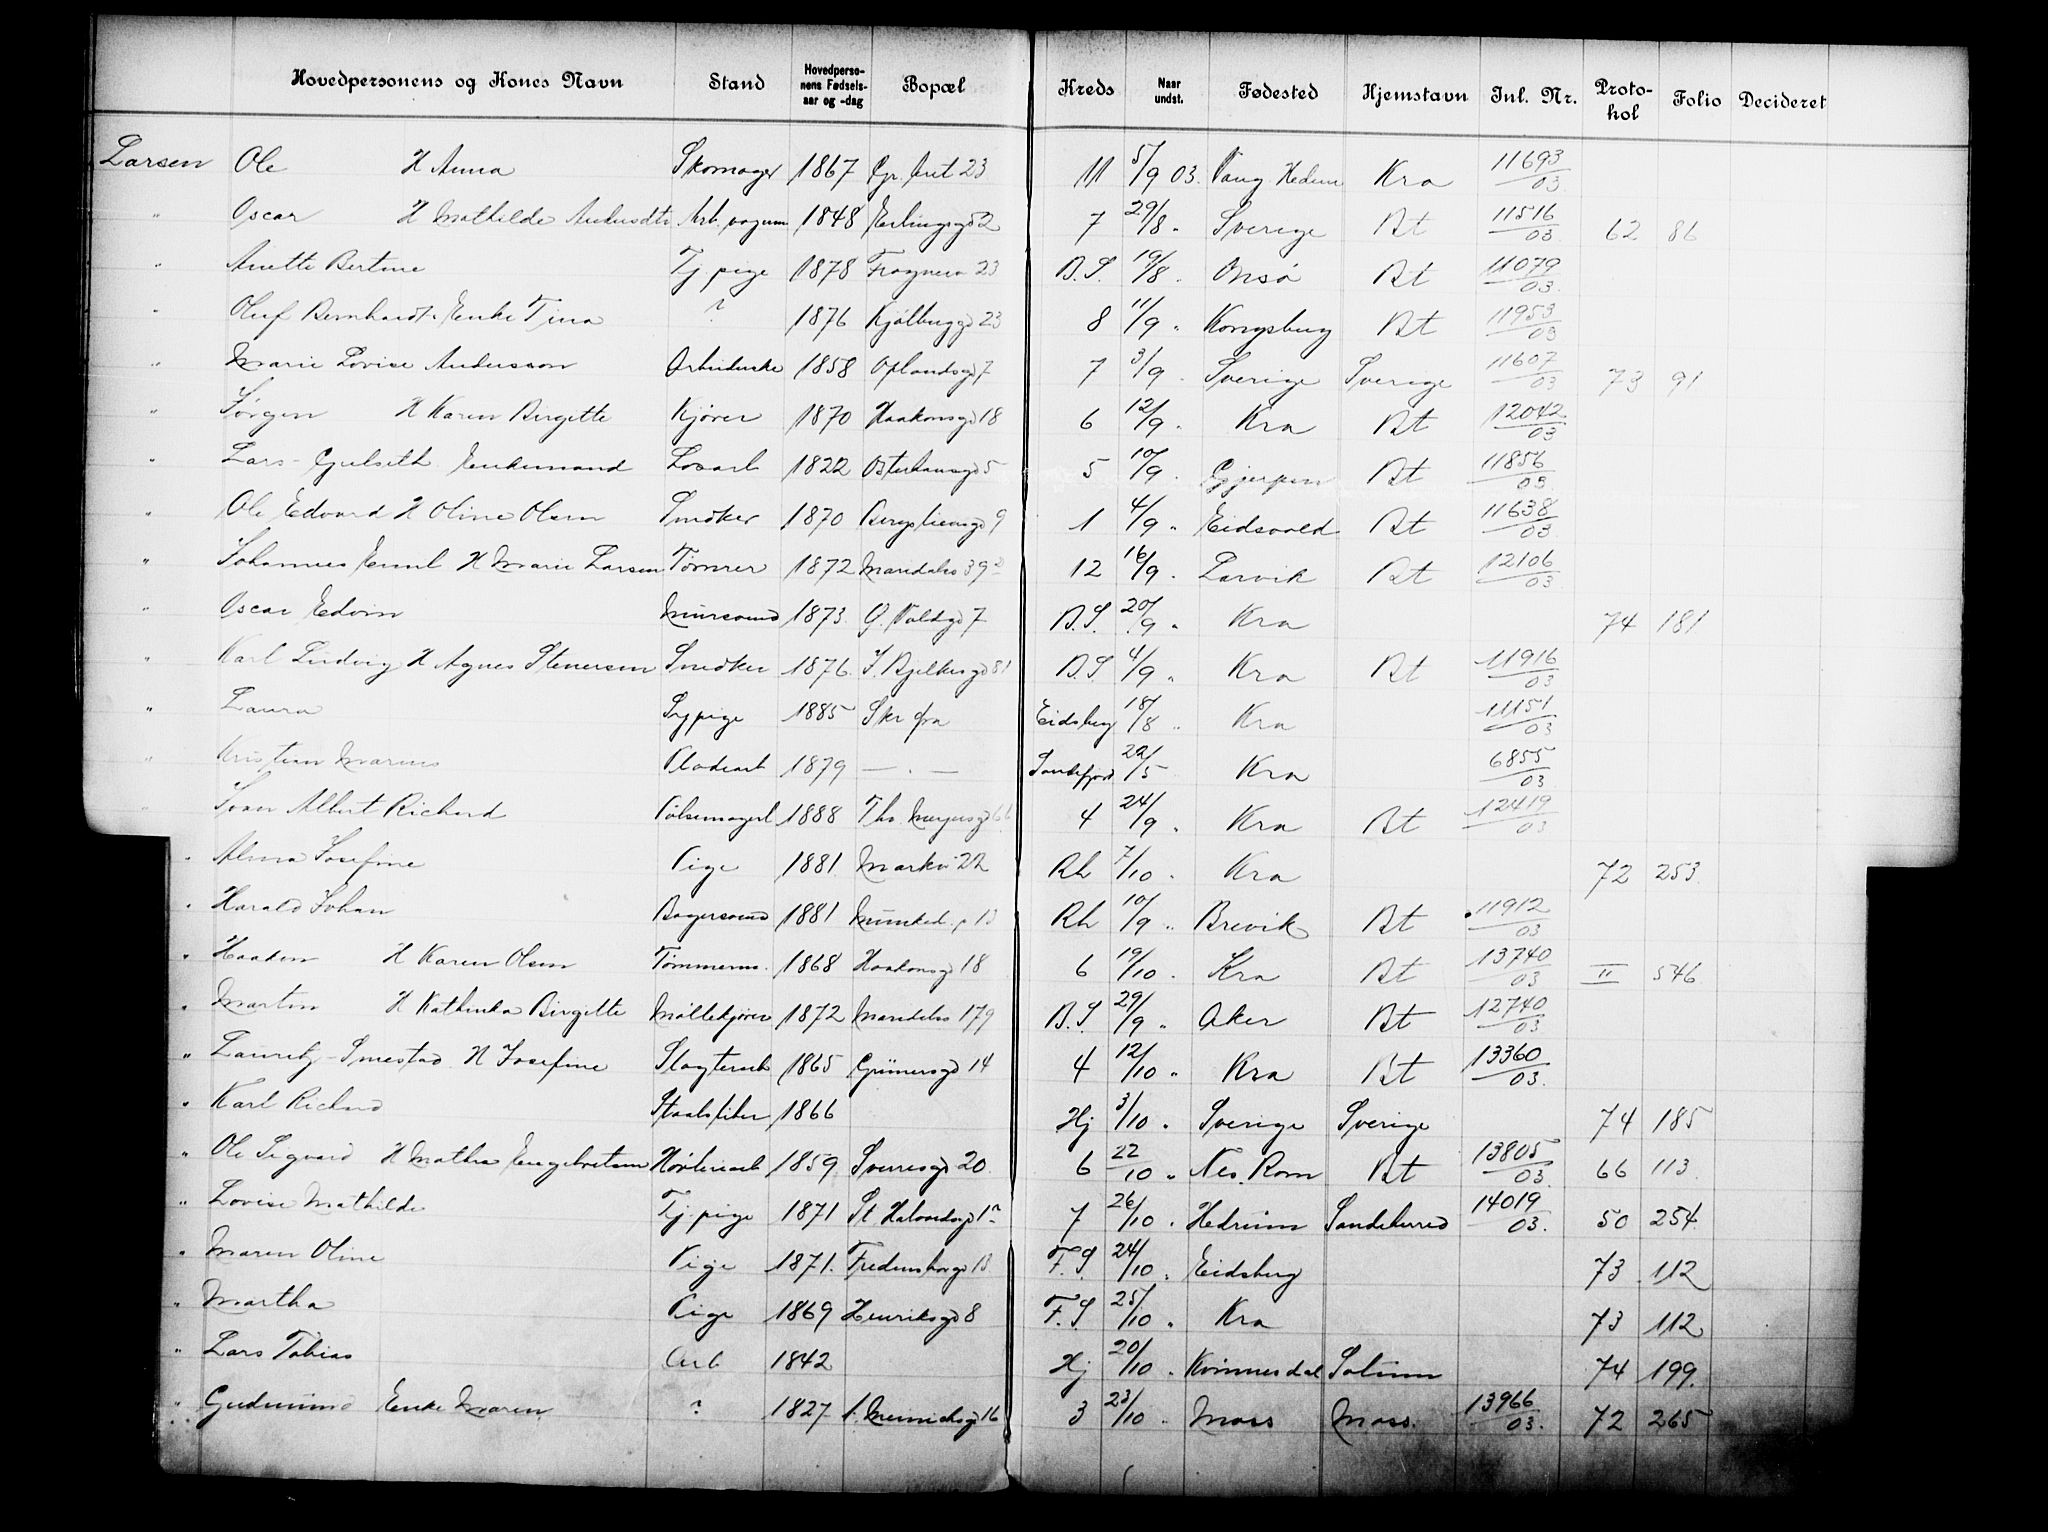 Hovedpersonens og Kones Navn Stand Hovedperso-nens Fødsels-aar og -dag Bopæl Kreds Naar undst. Fødested Hjemstavn Inl. Nr. Proto-kol Folio Decideret
Larsen Ole H Anna Skomager 1867 23 11 5/9 03. Vang Hedem Kra 11693/03
" Oscar H Mathilde 1848 Erlingsgd 2 7 29/8 " Sverige Bt 11516/03 62 86
" Anette Bertine Tj pige 1878 Frognerv 23 B.S. 19/8 " Onsø Bt 11079/03
" Oluf Bernhardt Enke Tina ? 1876 23 8 11/9 " Kongsberg Bt 11953/03
" Marie Lovise Andersson Arbeiderske 1858 Oplandsgd 7 7 3/9 " Sverige Sverige 11607/03 73 91
" Jørgen H Karen Birgitte Kjører 1870 Haakonsgd 18 6 12/9 " Kra Bt 12042/03
" Lars Gulseth Enkemand Losarb 1822 Osterhausgd 5 5 10/9 " Gjerpen Bt 11856/03
" Ole Edvard H Oline Olsen Snedker 1870 Bergsliensgd 9 1 4/9 " Eidsvold Bt 11638/03
" Johannes Emil H Marie Larsen Tømrer 1872 Maridalsv 39 12 16/9 " Larvik Bt 12106/03
" Oscar Edvin Murersvend 1873 7 B.S. 20/9 " Kra 74 181
" Karl Ludvig H Agnes Stenersen Snedker 1876 J. Bjelkesgd 81 B.S 4/9 " Kra Bt 11916/03
" Laura Sypige 1885 Skr fra Eidsberg 18/8 " Kra 11151/03
" Kristian Marius 1879 — " — Sandefjord 22/5 Kra 6855/03
" Albert Richard Pølsemagerl 1888 Th. Meyersgd 66 4 24/9 " Kra Bt 12419/03
" Alma Josefine Pige 1881 Markv 22 Rh 7/10 " Kra 72 253
" Harald Johan Bagersvend 1881 13 Rh 10/9 " Brevik Bt 11912/03
" Haakon H Karen Olsen Tømmerm. 1868 Haakonsgd 18 6 19/10 " Kra Bt 13740/03 II 546
" Martin H Kathinka Birgitte Møllekjører 1872 Maridalsv 179 B.S. 29/9 " Aker Bt 12740/03
" Lauritz Smestad H Josefine Slagterarb 1865 Grünersgd 14 4 12/10 " Kra Bt 13360/03
" Karl Richard 1866 Hj 3/10 " Sverige Sverige 74 185
" Ole Sigvard H Mathea Engebretsen Høvleriarb 1859 Sverresgd 20 6 22/10 " Nes. Rom Bt 13805/03 66 113
" Lovise Mathilde Tj. pige 1871 St Halvardsgd 1 7 26/10 " Hedrum Sandeherred 14019/03 50 254
" Maren Oline Pige 1871 Fredensborgv 13 F.S. 24/10 " Eidsberg 73 112
" Martha Pige 1869 Henriksgd 8 F.S. 25/10 " Kra 73 112
" Lars Tobias Arb 1842 Hj 20/10 " Solum 74 199
" Gudmund Enke Maren ? 1827 Munchsgd 16 3 23/10 " Moss Moss 13966/03 72 265